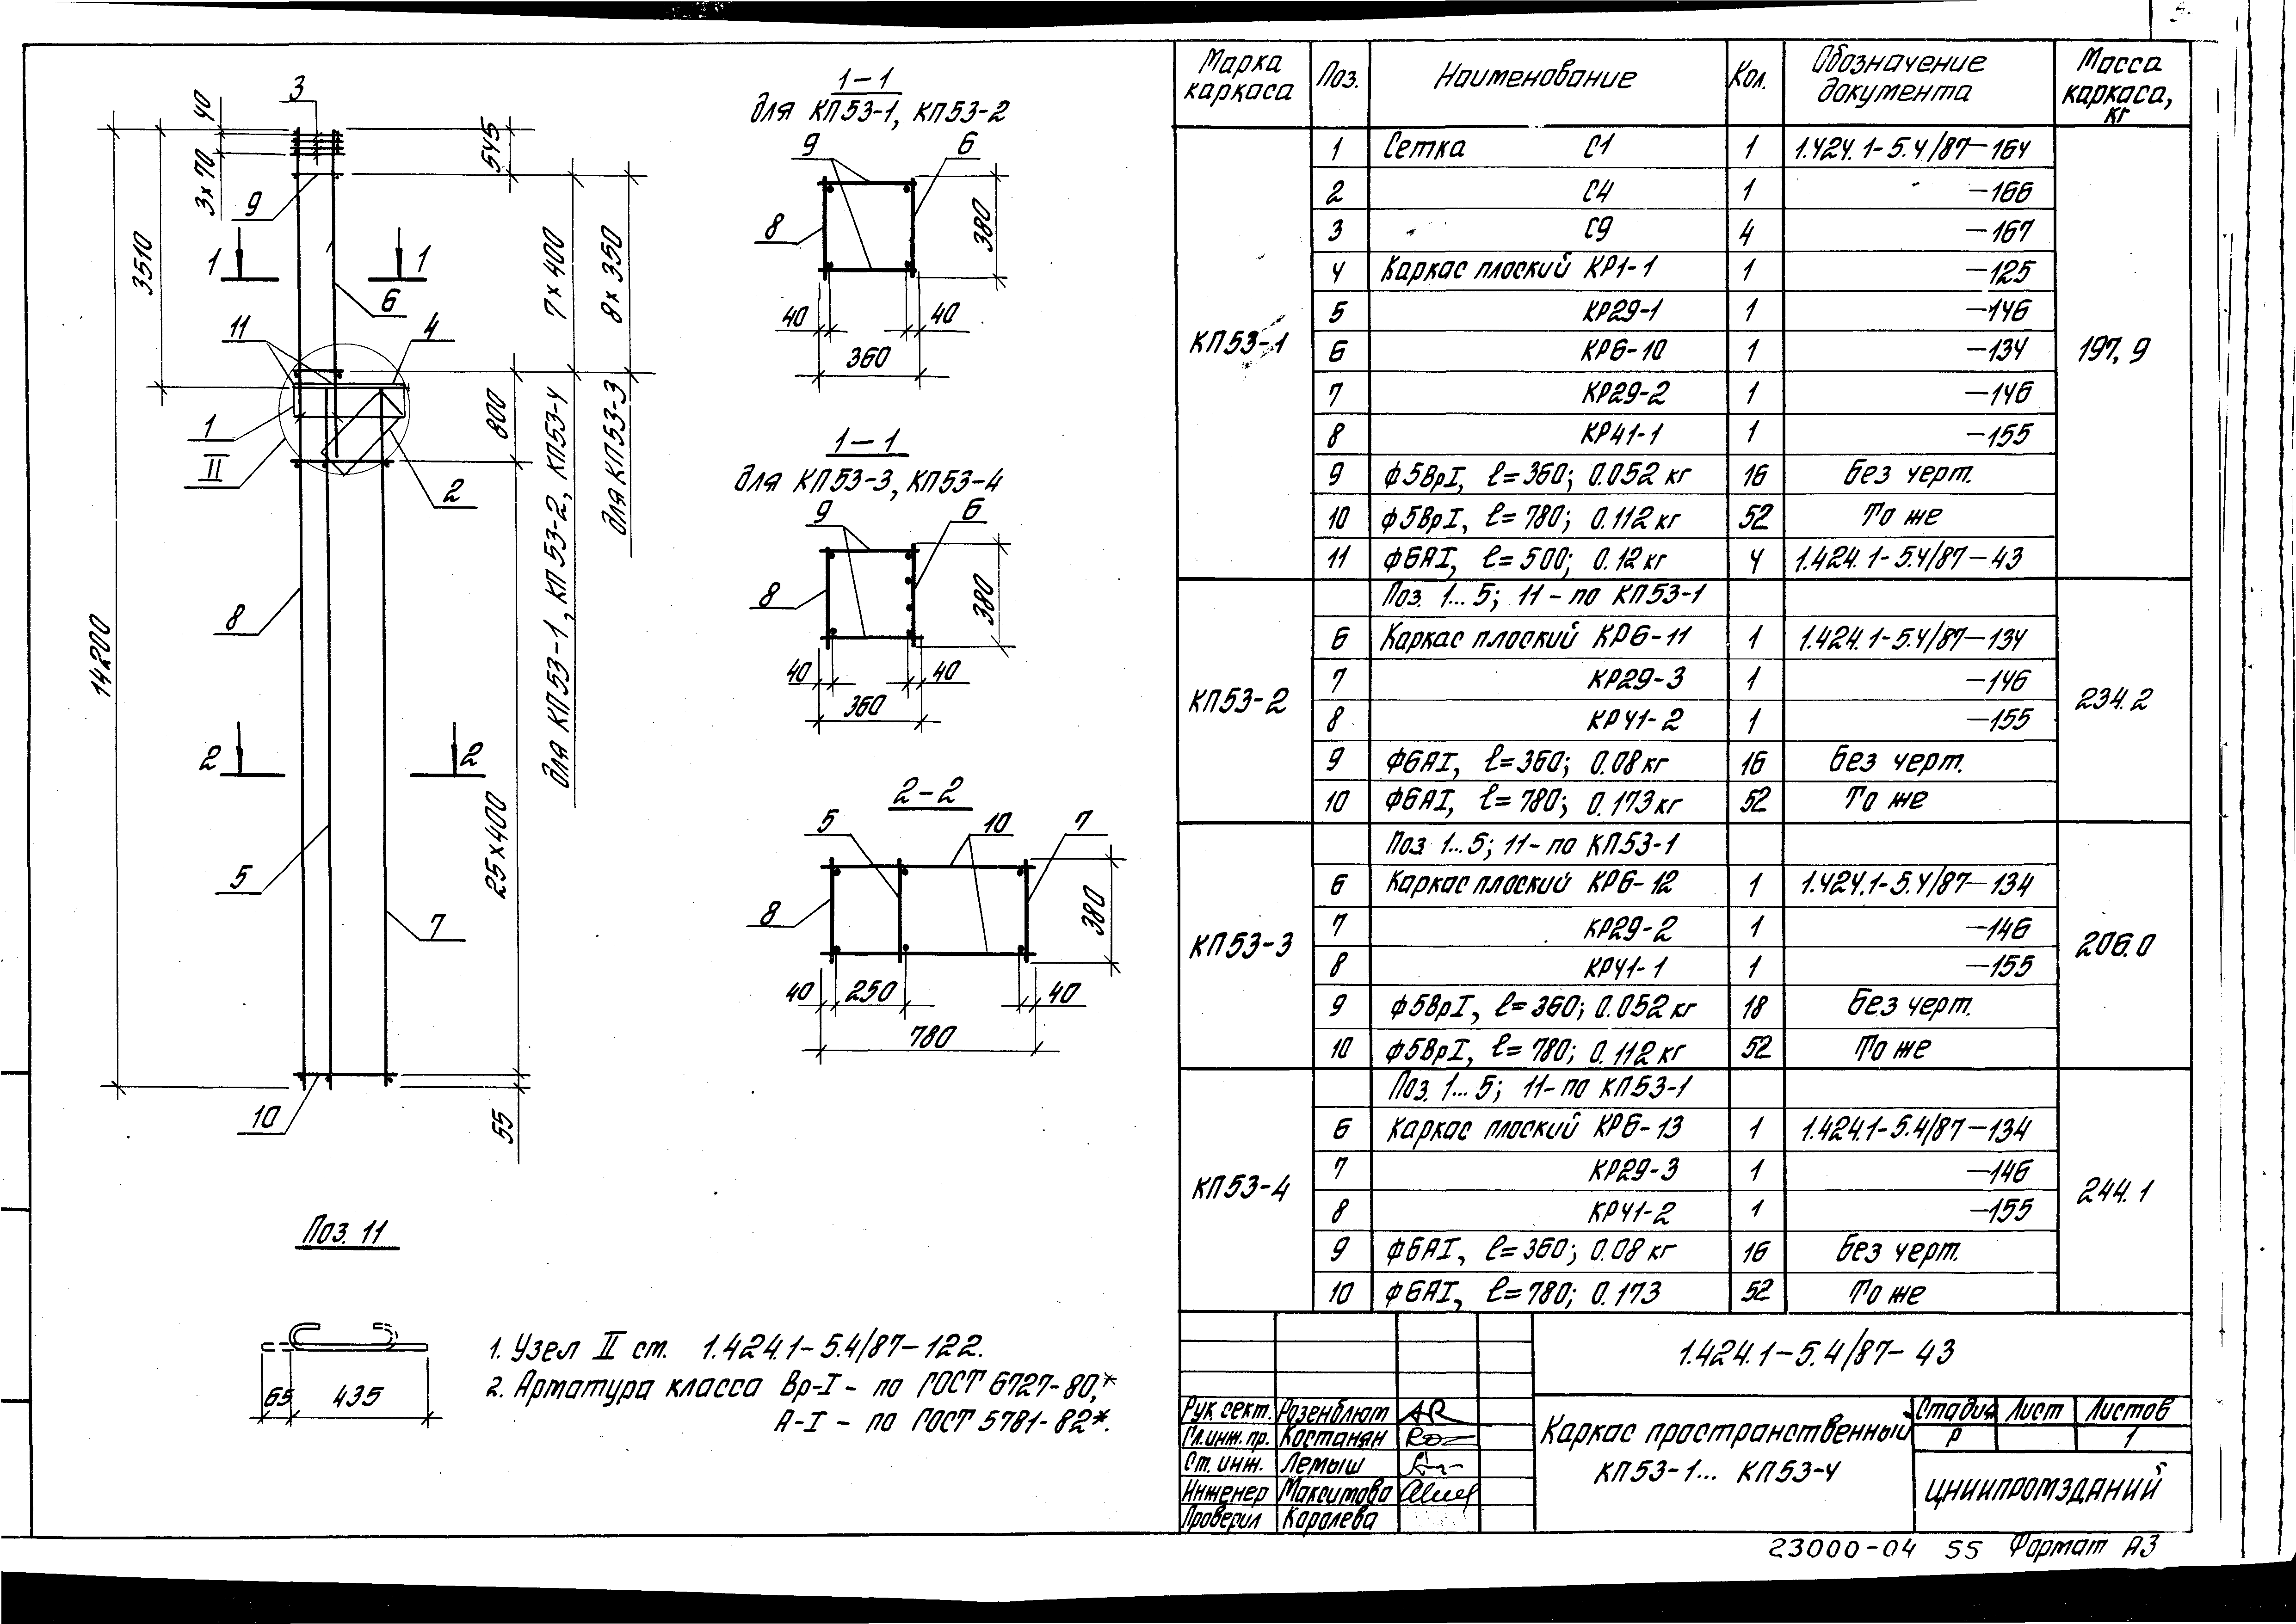 3
40
3×70
545
9
3510
1 1
6
11
4
7×400
8×350
1
II
800
2
для КП53-1, КП53-2, КП53-4
для КП53-3
8
14200
2 2
5
25×400
7
10
55
1-1
для КП53-1, КП53-2
9
6
8
380
40
40
360
1-1
для КП53-3, КП53-4
9
6
8
380
40
40
360
2-2
5
10
7
8
380
40
250
40
780
Поз. 11
65
435
1. Узел II см. 1.424.1-5.4/87-122.
2. Арматура класса Вр-I - по ГОСТ 6727-80,*
А-I - по ГОСТ 5781-82*.
Марка каркаса Поз. Наименование Кол. Обозначение документа Масса каркаса, кг
КП53-1 197,9
1 Сетка С1 1 1.424.1-5.4/87-164
2 С4 1 -166
3 С9 4 -167
4 Каркас плоский КР1-1 1 -125
5 КР29-1 1 -146
6 КР6-10 1 -134
7 КР29-2 1 -146
8 КР41-1 1 -155
9 ф5ВрI, ℓ=360; 0.052 кг 16 Без черт.
10 ф5ВрI, ℓ=780; 0.112 кг 52 То же
11 ф6АI, ℓ=500; 0.12 кг 4 1.424.1-5.4/87-43
КП53-2 234.2
Поз. 1...5; 11-по КП53-1
6 Каркас плоский КР6-11 1 1.424.1-5.4/87-134
7 КР29-3 1 -146
8 КР41-2 1 -155
9 ф6АI, ℓ=360; 0.08 кг 16 Без черт.
10 ф6АI, ℓ=780; 0.173 кг 52 То же
КП53-3 206.0
Поз 1...5; 11-по КП53-1
6 Каркас плоский КР6-12 1 1.424.1-5.4/87-134
7 КР29-2 1 -146
8 КР41-1 1 -155
9 ф5ВрI, ℓ=360; 0.052 кг 18 Без черт.
10 ф5ВрI, ℓ=780; 0.112 кг 52 То же
КП53-4 244.1
Поз. 1...5; 11-по КП53-1
6 Каркас плоский КР6-13 1 1.424.1-5.4/87-134
7 КР29-3 1 -146
8 КР41-2 1 -155
9 ф6АI, ℓ=360; 0.08 кг 16 Без черт.
10 ф6АI, ℓ=780; 0.173 52 То же
1.424.1-5.4/87-43
Рук. сект. Розенблюм
Гл. инж. пр. Костанян
Ст. инж. Лемыш
Инженер Максимова
Проверил Каролева
Каркас пространственный
КП53-1... КП53-4
Стадия Лист Листов
Р 1
ЦНИИПРОМЗДАНИЙ
23000-04 55 Формат А3